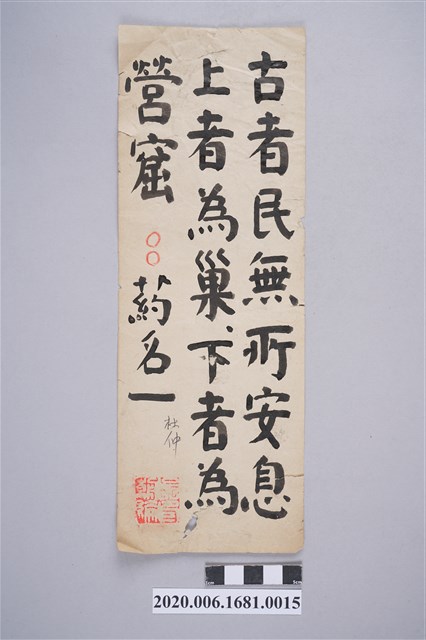 古者民無所安息
上者為巢、下者為
營窟
葯名一
杜仲
2020.006.1681.0015